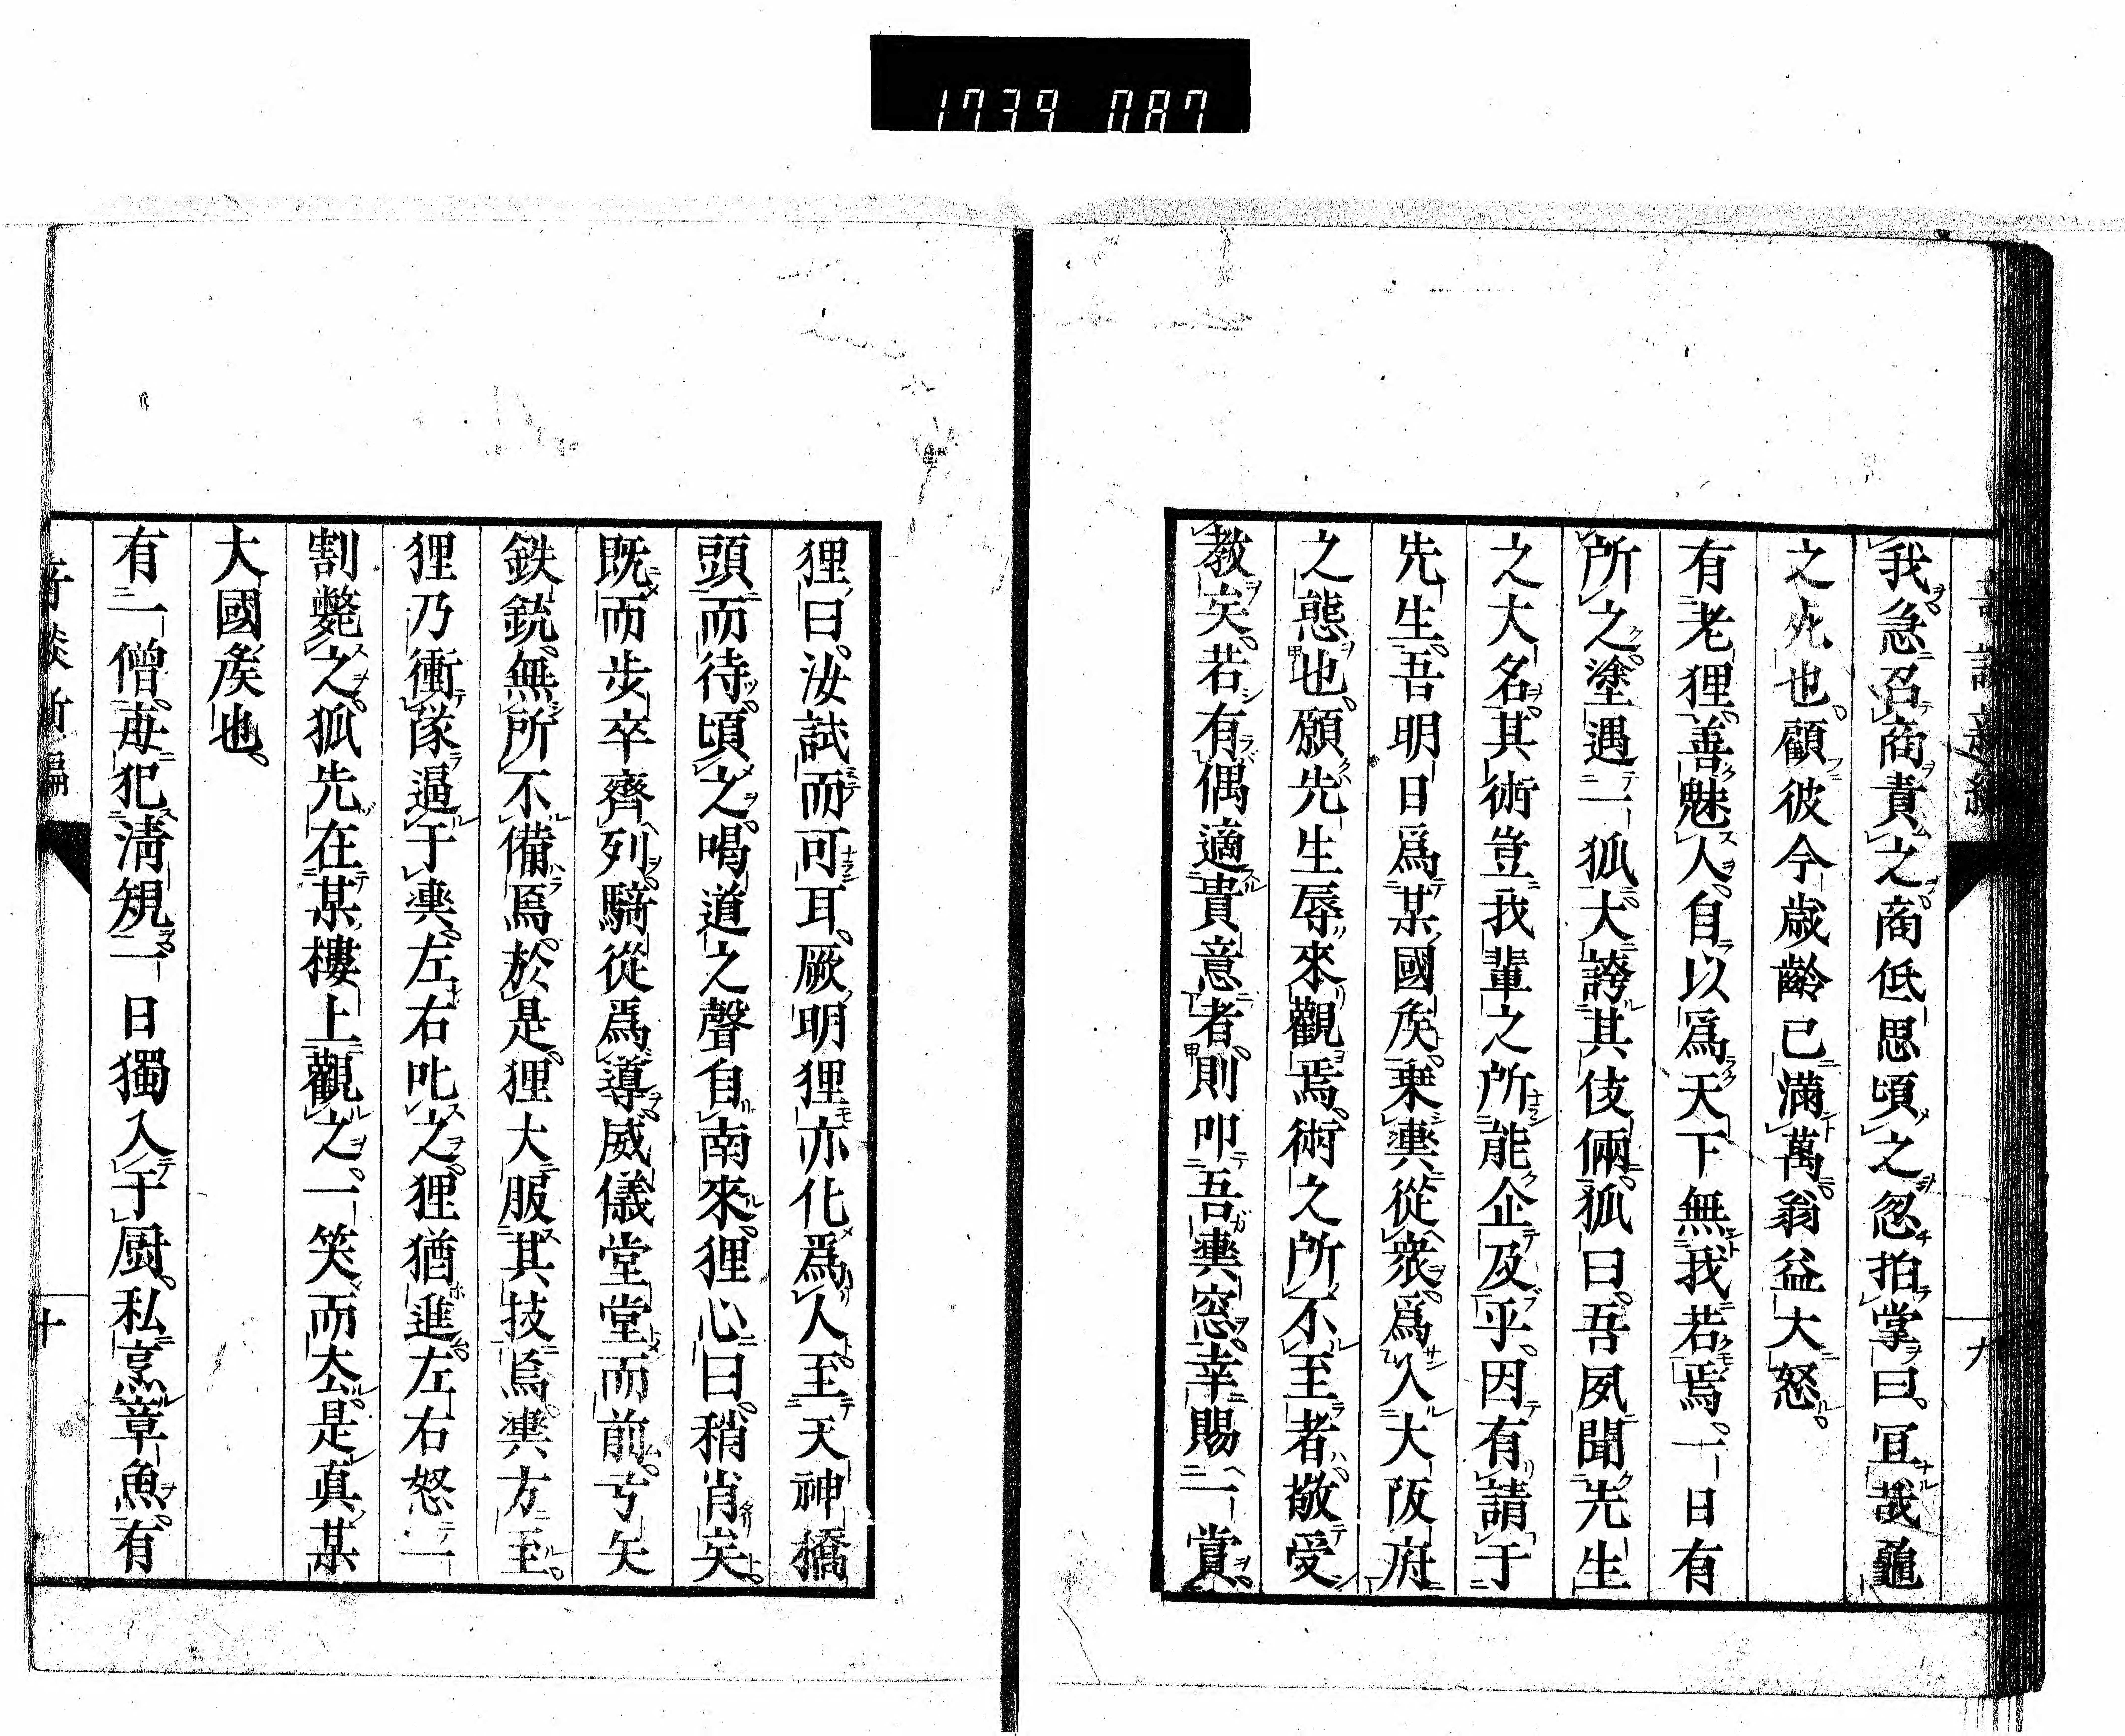 1739 087
我急召商責之商低思頃之忽拍掌曰冝哉龜
之死也顧彼今歳齡已滿萬翁益大怒
有老狸善魅人自以爲天下無我若焉一日有
所之塗遇一狐大誇其伎倆狐曰吾夙聞先生
之大名其術豈我輩之所能企及乎因有請于
先生吾明日爲某國矦乗輿從衆爲入大阪府
之態也願先生辱來觀焉術之所不至者敬受
教矣若有偶適貴意者則叩吾輿窓幸賜一賞
九
狸曰汝試而可耳厥明狸亦化爲人至天神橋
頭而待頃之喝道之聲自南來狸心曰稍肖矣
既而步卒齊列騎從爲導威儀堂堂而前弓矢
鉄銃無所不備焉於是狸大服其技焉輿方至
狸乃衝隊逼于輿左右叱之狸猶進左右怒一
割斃之狐先在某樓上觀之一笑而去是真某
大國矦也
有一僧毎犯淸規一日獨入于厨私烹章魚有
十